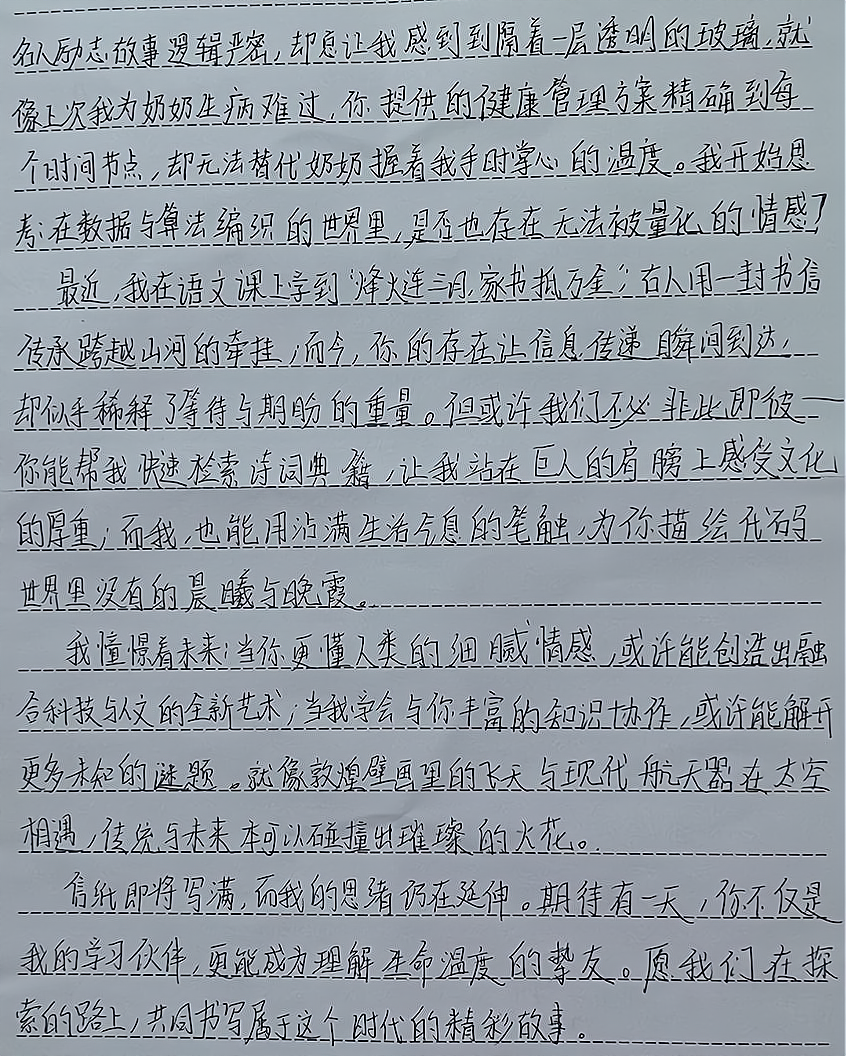 名人励志故事逻辑严密，却总让我感到到隔着一层透明的玻璃，就
像上次我为奶奶生病难过，你提供的健康管理方案精确到每
个时间节点，却无法替代奶奶握着我手时掌心的温度。我开始思
考：在数据与算法编织的世界里，是否也存在无法被量化的情感？
最近，我在语文课上学到“烽火连三月，家书抵万金”，古人用一封书信
传承跨越山河的牵挂，而今，你的存在让信息传递瞬间到达，
却似乎稀释了等待与期盼的重量。但或许我们不必非此即彼——
你能帮我快速检索诗词典籍，让我站在巨人的肩膀上感受文化
的厚重；而我，也能用沾满生活气息的笔触，为你描绘代码
世界里没有的晨曦与晚霞。
我憧憬着未来：当你更懂人类的细腻情感，或许能创造出融
合科技与人文的全新艺术；当我学会与你丰富的知识协作，或许能解开
更多未知的谜题。就像敦煌壁画里的飞天与现代航天器在太空
相遇，传统与未来本可以碰撞出璀璨的火花。
信纸即将写满，而我的思绪仍在延伸。期待有一天，你不仅是
我的学习伙伴，更能成为理解生命温度的挚友。愿我们在探
索的路上，共同书写属于这个时代的精彩故事。